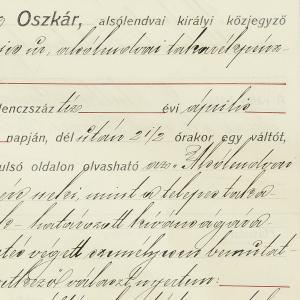 Oszkár, alsólendvai királyi közjegyző
úr, alsólendvai takarékpénz-
lenczszáz tíz évi április
napján, dél után 2 1/2 órakor egy váltót,
ulsó oldalon olvasható az "Alsólendvai
neki, mint a telepes taka-
határozott kívánságára
végett személyesen bemutat-
választ nyertem: